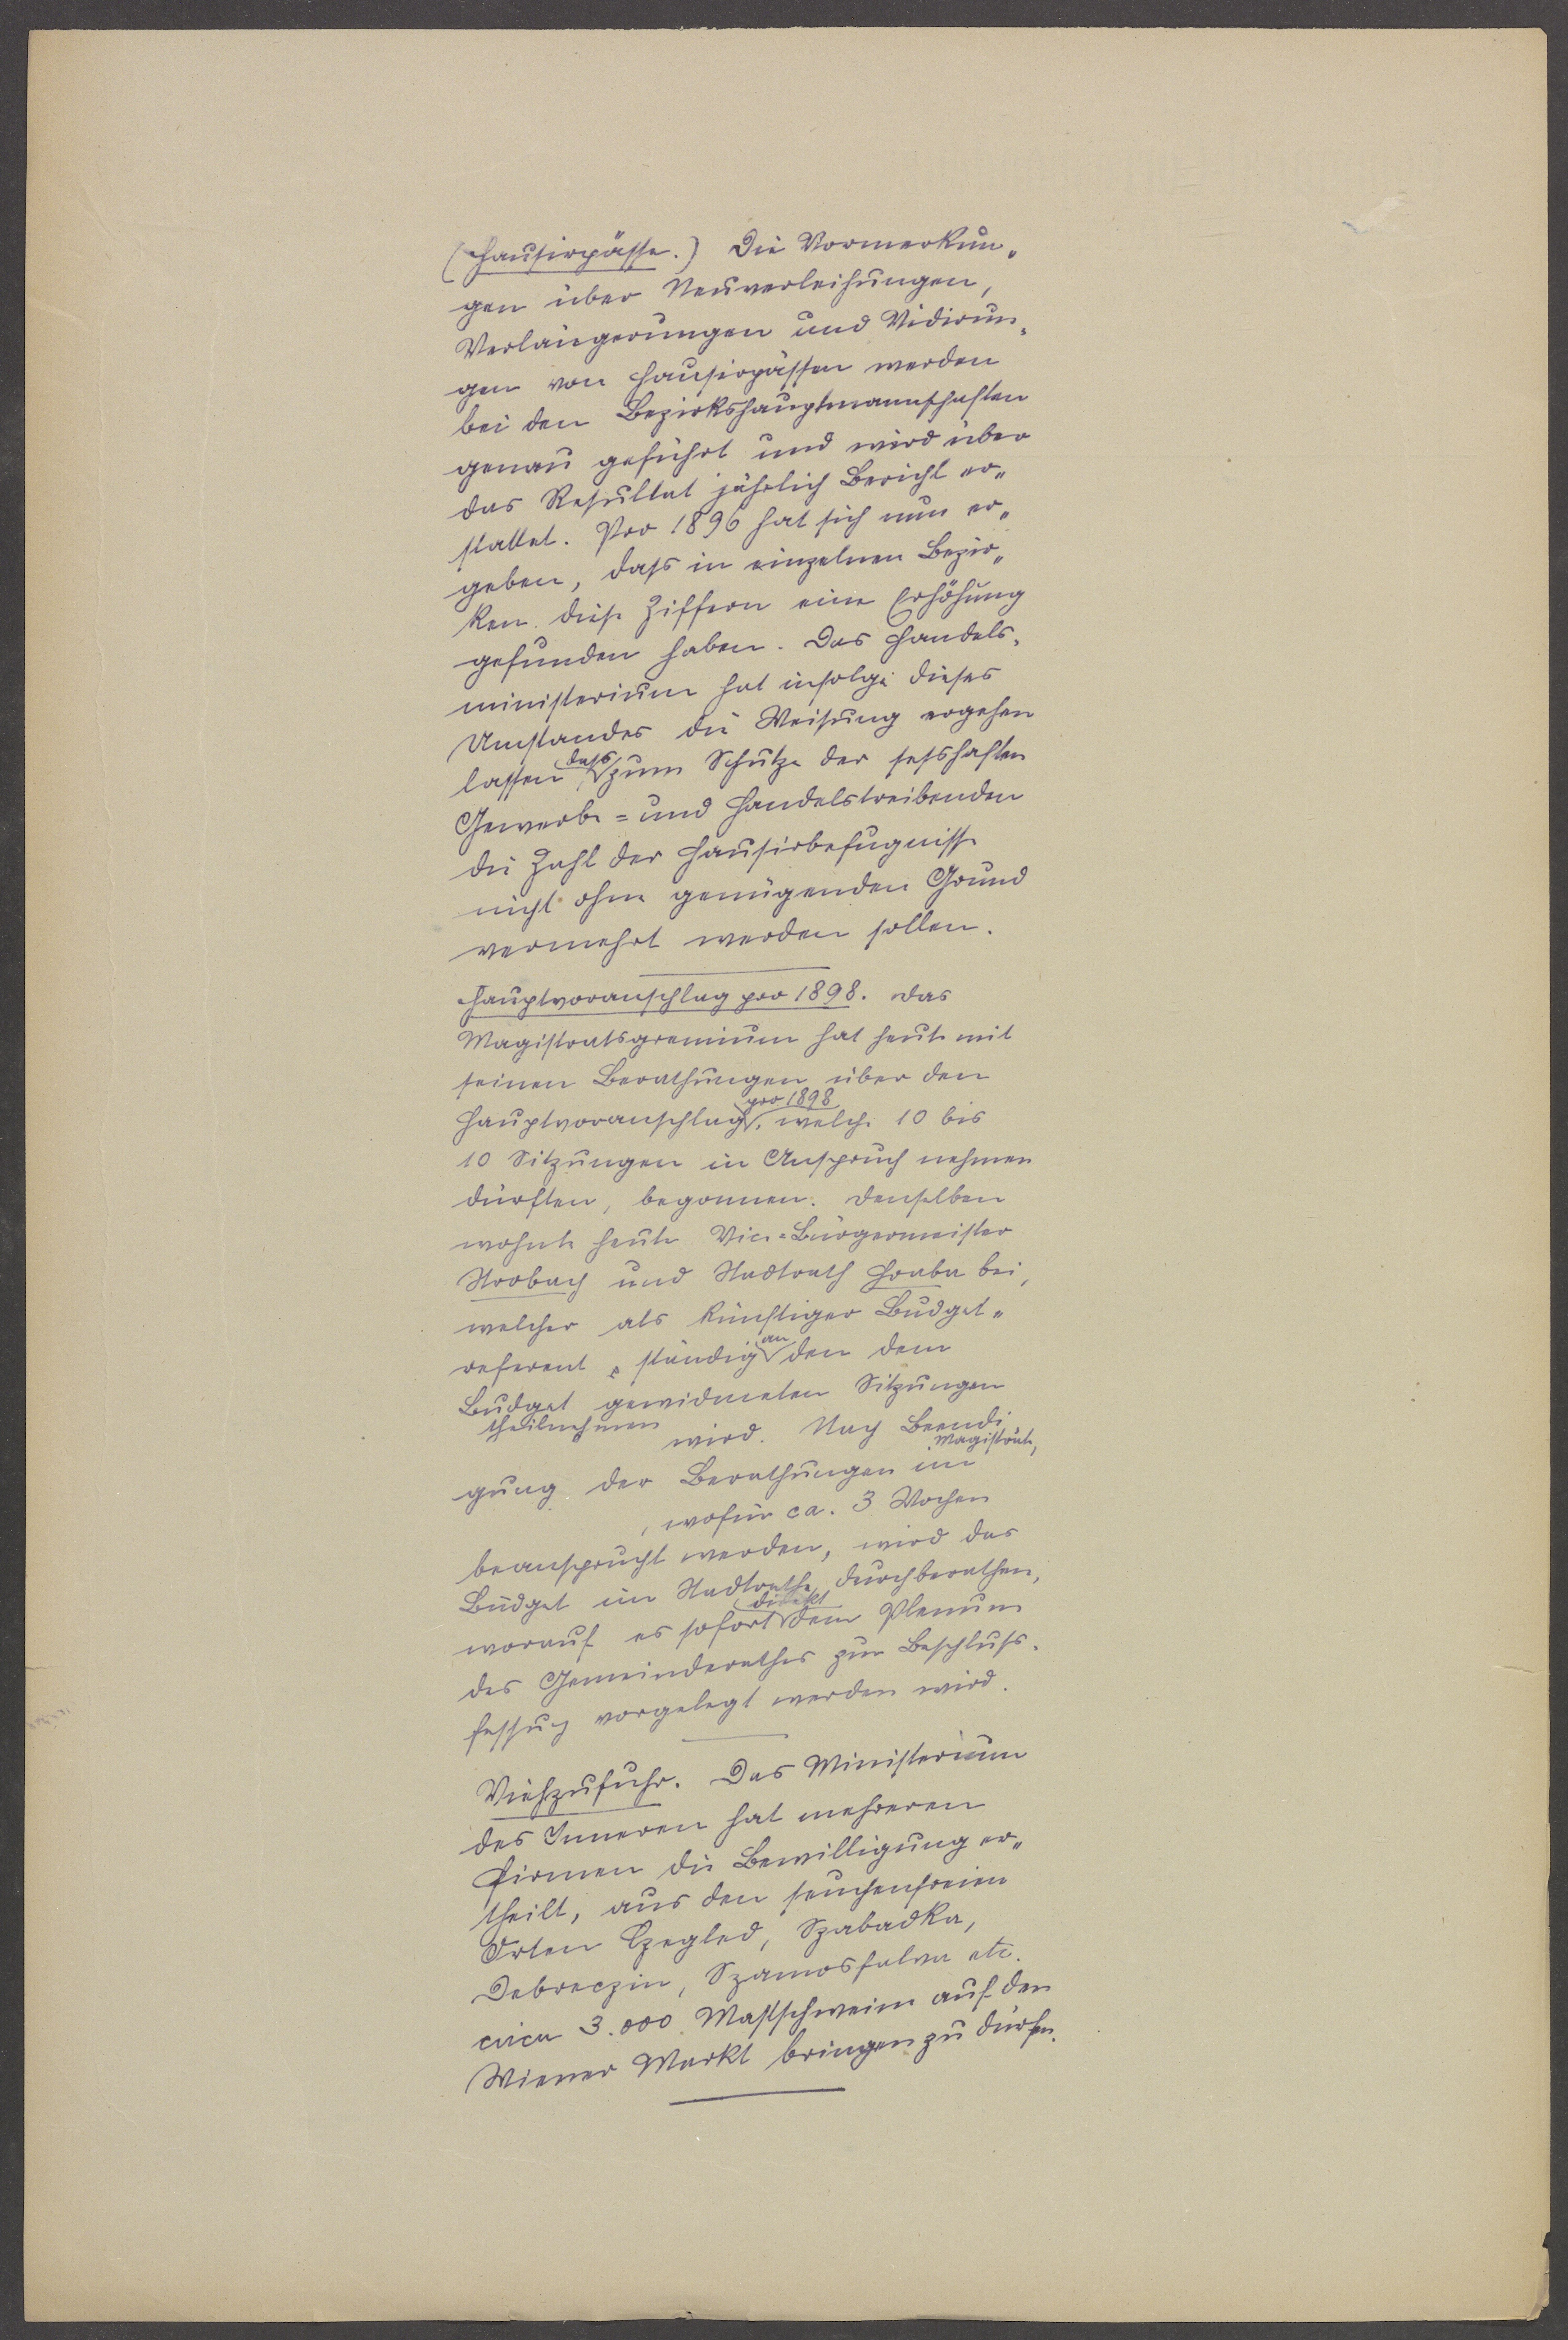 (Hausirpässe.) Die Vormerkun„
gen über Neuverleihungen,
Verlängerungen und Vidirun„
gen von Hausirpässen werden
bei den Bezirkshauptmannschaften
genau geführt und wird über
das Resultat jährlich Bericht er„
stattet. Pro 1896 hat sich nun er„
geben, dass in einzelnen Bezir„
ken diese Ziffern eine Erhöhung
gefunden haben. Das Handels„
ministerium hat infolge dieses
Umstandes die Weisung ergehen
lassen, dass zum Schutze der sesshaften
Gewerbe= und Handelstreibenden
die Zahl der Hausirbefugnisse
nicht ohne genügenden Grund
vermehrt werden sollen.
Hauptvoranschlag pro 1898. Das
Magistratsgremium hat heute mit
seinen Berathungen über den
Hauptvoranschlag pro 1898, welche 10 bis
10 Sitzungen in Anspruch nehmen
dürften, begonnen. Denselben
wohnte heute Vice-Bürgermeister
Strobach und Stadtrath Hraba bei,
welcher als künftiger Budget„
referent ständig an den dem
Budget gewidmeten Sitzungen
theilnehmen wird. Nach Beendi
gung der Berathungen im Magistrate,
, wofür ca. 3 Wochen
beansprucht werden, wird das
Budget im Stadtrathe durchberathen,
worauf es sofort direkt dem Plenum
des Gemeinderathes zur Beschluss„
fassung vorgelegt werden wird.
Viehzufuhr. Das Ministerium
des Inneren hat mehreren
Firmen die Bewilligung er„
theilt, aus den seuchenfreien
Orten Czegled, Szabadka,
Debreczin, Szamosfalva etc.
circa 3.000 Mastschweine auf den
Wiener Markt bringen zu dürfen.